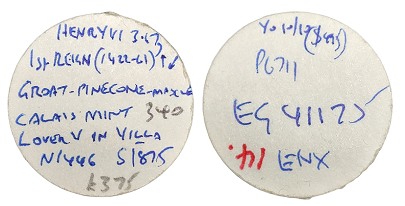 HENRY VI 3.63
1ST REIGN (1422-61) ↑↙
GROAT-PINECONE-MASCLE
CALAIS MINT 340
LOVER V IN VILLA
N/446 S/875
£375
P6711
EG 41175
141. ENX